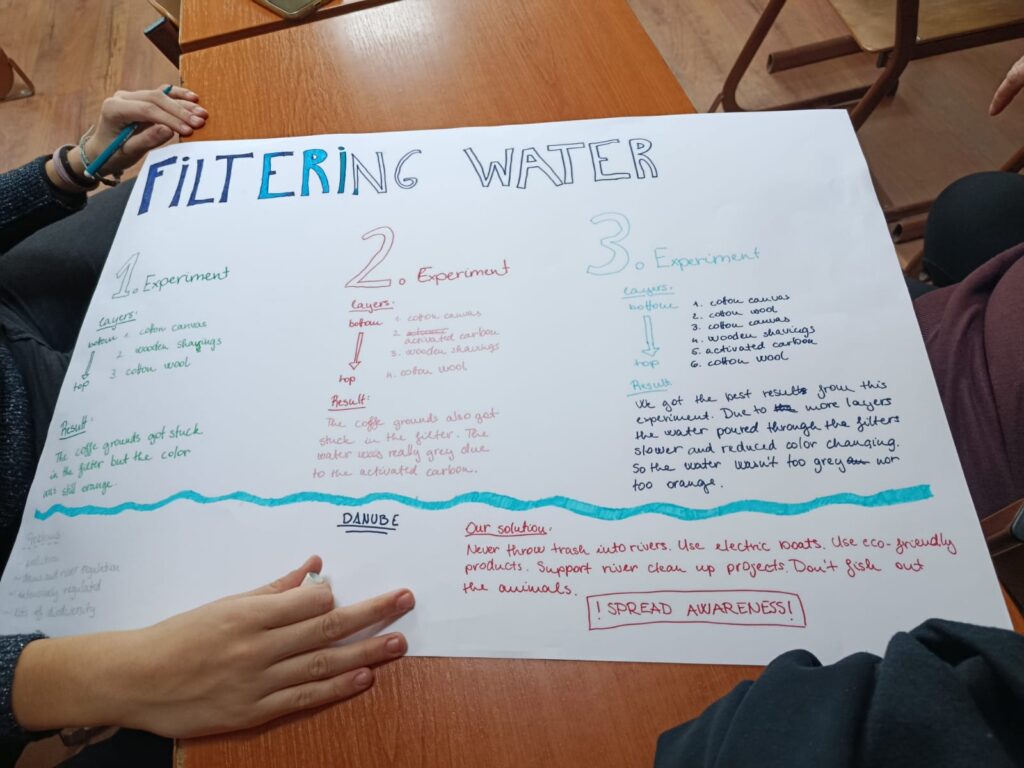 FILTERING WATER
1. Experiment
Layers:
bottom
top
1 cotton canvas
2 wooden shavings
3 cotton wool
Result:
The coffe grounds got stuck
in the filter but the color
was still orange.
2. Experiment
Layers:
bottom
top
1 cotton canvas
2 activated carbon
3. wooden shavings
4. cotton wool
Result:
The coffe grounds also got
stuck in the filter. The
water was really grey due
to the activated carbon.
3. Experiment
Layers:
bottom
top
1. cotton canvas
2. cotton wool
3. cotton canvas
4. wooden shavings
5. activated carbon
6. cotton wool
Result
We got the best results from this
experiment. Due to more layers
the water poured through the filters
slower and reduced color changing.
So the water wasn't too grey nor
too orange.
DANUBE
Problems
pollution
river regulation
regulated
lots of biodiversity
Our solution:
Never throw trash into rivers. Use electric boats. Use eco-friendly
products. Support river clean up projects. Don't fish out
the animals.
! SPREAD AWARENESS!